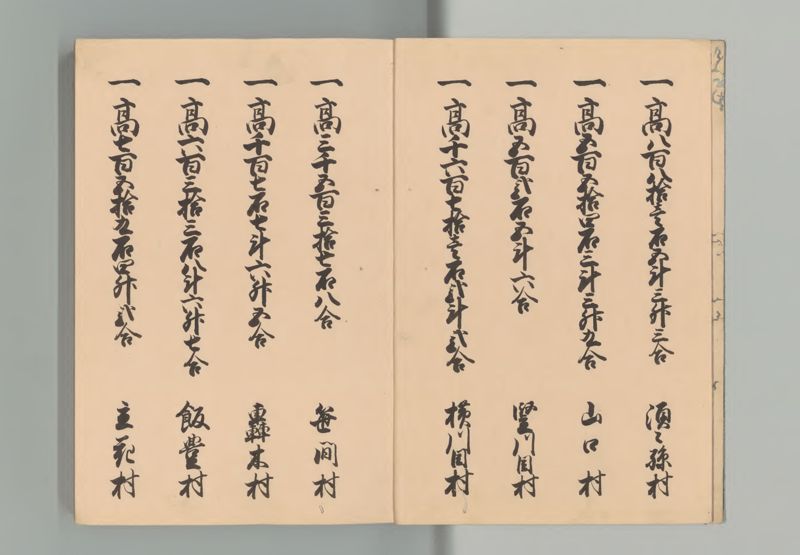 一高八百八拾三石五斗三升三合 須々孫村
一高五百五拾四石三斗三升九合 山口村
一高五百弐石五斗六合 竪川目村
一高千六百七拾三石弐斗弐合 横川目村
一高三千五百三拾七石八合 笹間村
一高千百七石七斗六升五合 轟木村
一高六百三拾三石八斗六升七合 飯豊村
一高七百五拾九石四升弐合 立花村